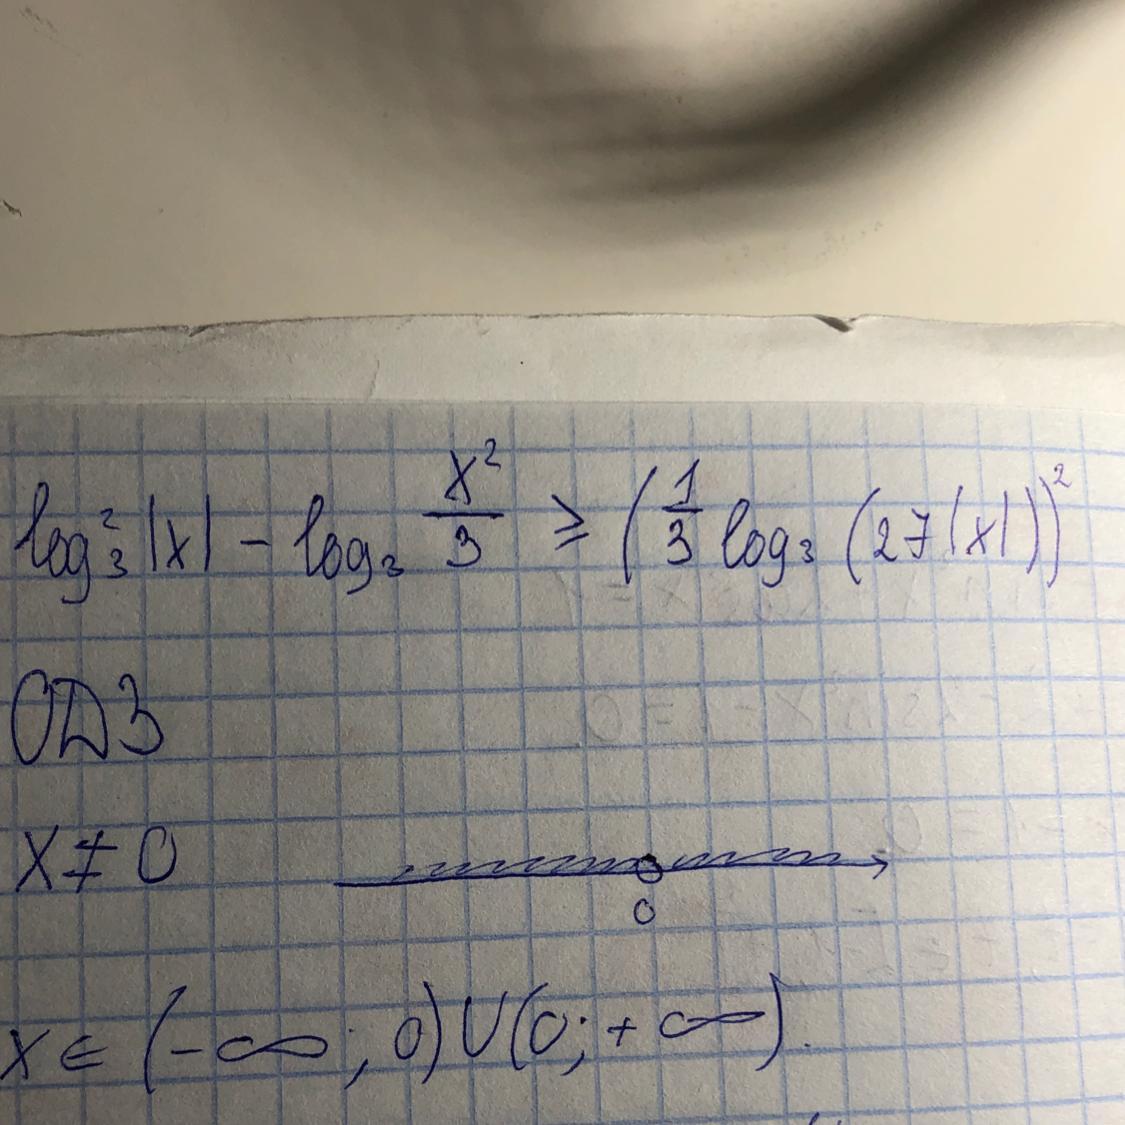 log₃²|x| - log₃ x²/3 ≥ (1/3 log₃ (27|x|))²
ОДЗ
x ≠ 0
0
x ∈ (-∞; 0) U (0; +∞).